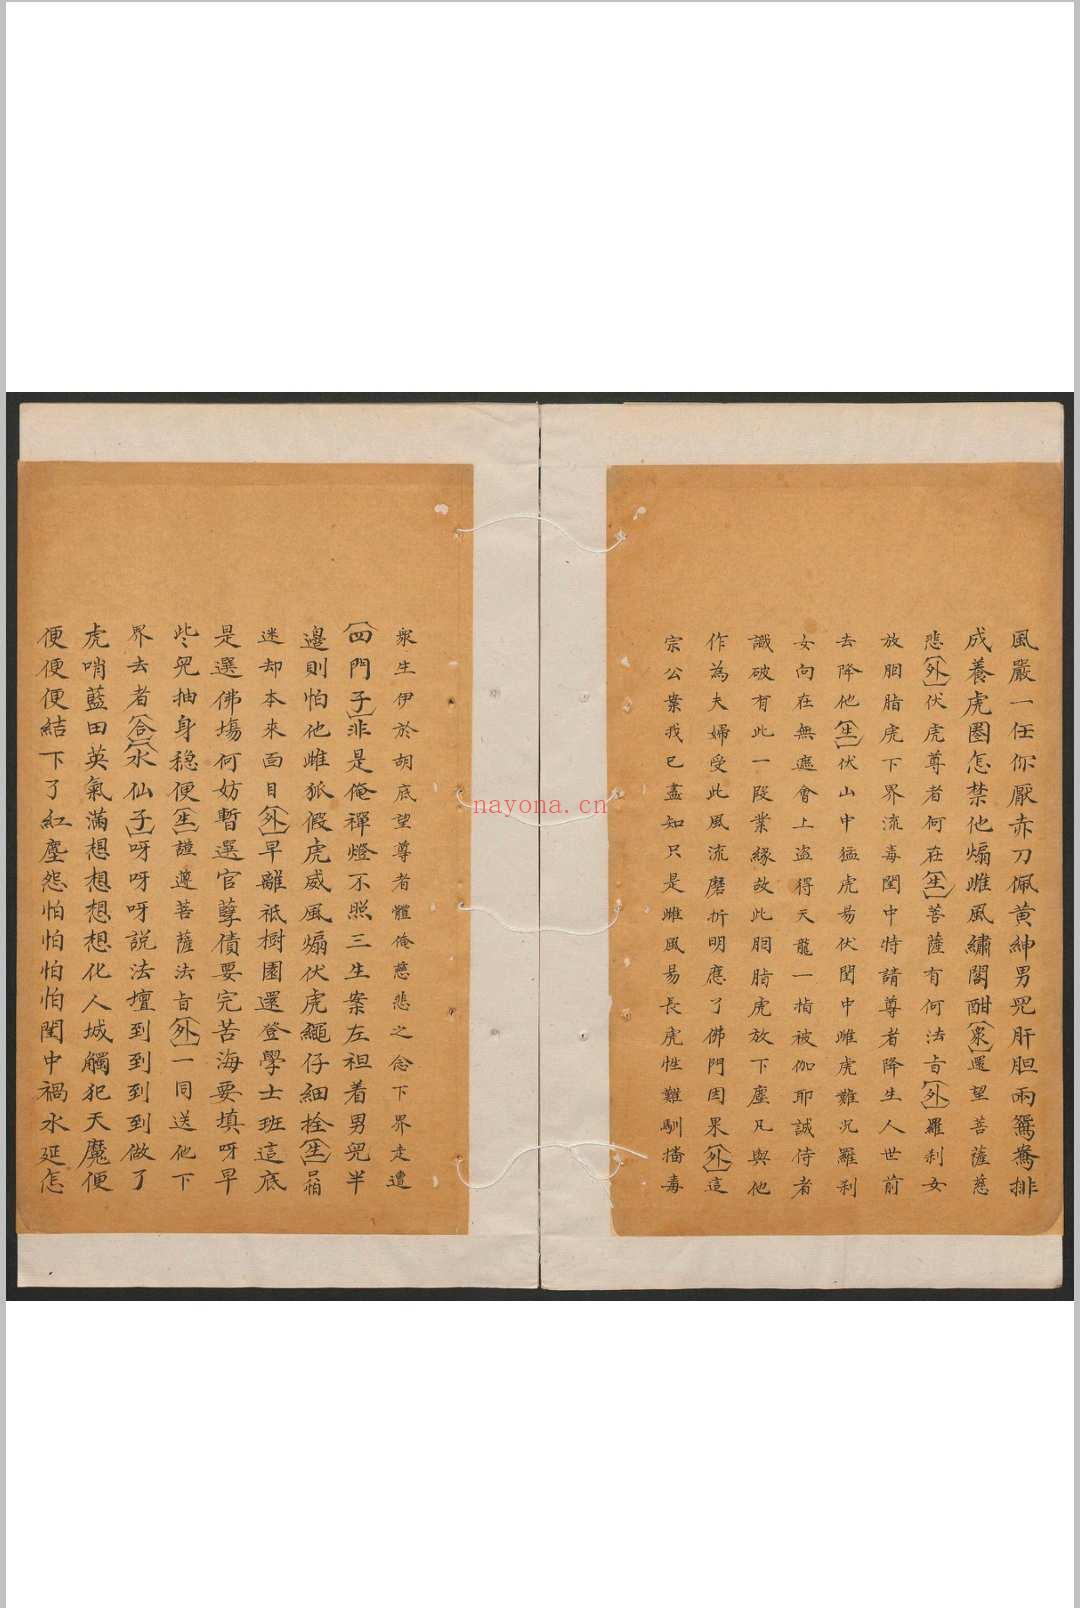 風嚴一任你厭赤刀佩黃紳男兒肝胆兩鴛鴦排
成養虎圈怎禁他煽雌風繡閣酣(衆)還望菩薩慈
悲(外)伏虎尊者何在(生)菩薩有何法旨(外)羅刹女
放胭脂虎下界流毒閨中特請尊者降生人世前
去降他(生)伏山中猛虎易伏閨中雌虎難况羅刹
女向在無遮會上盗得天龍一指被伽耶誠侍者
識破有此一段業緣故此胭脂虎放下塵凡與他
作為夫婦受此風流磨折明應了佛門因果(外)這
宗公案我已盡知只是雌風易長虎性難馴擋毒
衆生伊於胡底望尊者體俺慈悲之念下界走遭
(四門子)非是俺禪燈不照三生案左袒着男兒半
邊則怕他雌狐假虎威風煽伏虎繩仔細拴(生)只怕
迷却本來面目(外)早離祗樹園還登學士班這底
是選佛塲何妨暫選官孽債要完苦海要填呀早
些兒抽身穩便(生)謹遵菩薩法旨(外)一同送他下
界去者(合)(水仙子)呀呀呀說法壇到到到到做了
虎哨藍田英氣滿想想想想化人城觸犯天魔便
便便便結下了紅塵怨怕怕怕怕閨中禍水延怎
nayona.cn